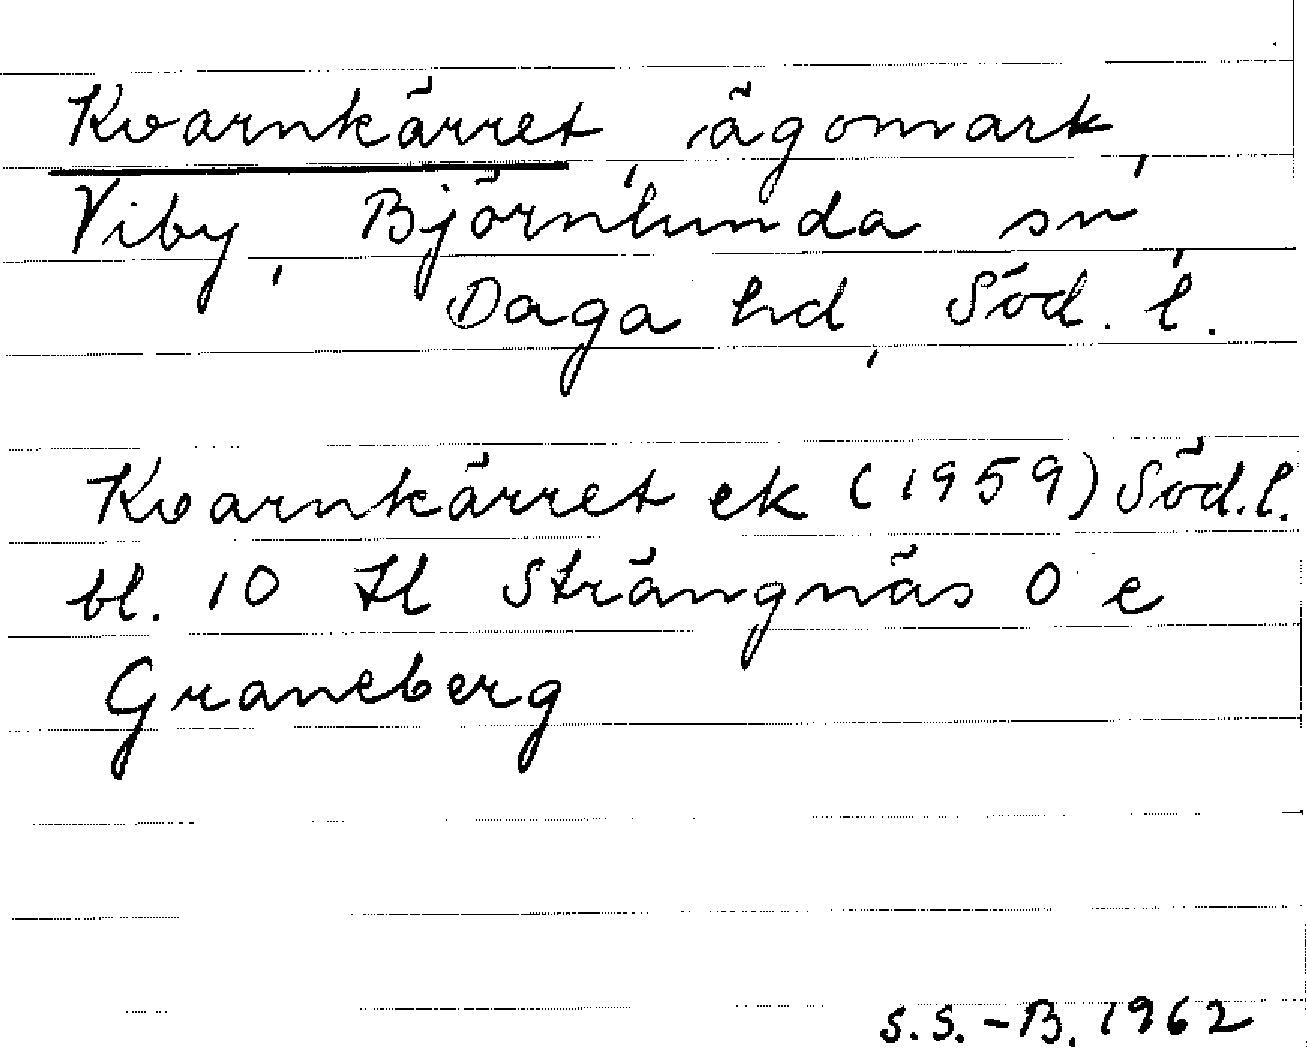 Kvarnkärret, ägomark,
Viby, Björnlunda sn,
Daga hd, Söd. l.
Kvarnkärret ek (1959) Söd.l.
bl. 10 Il Strängnäs O e
Graneberg
S.S.-B. 1962